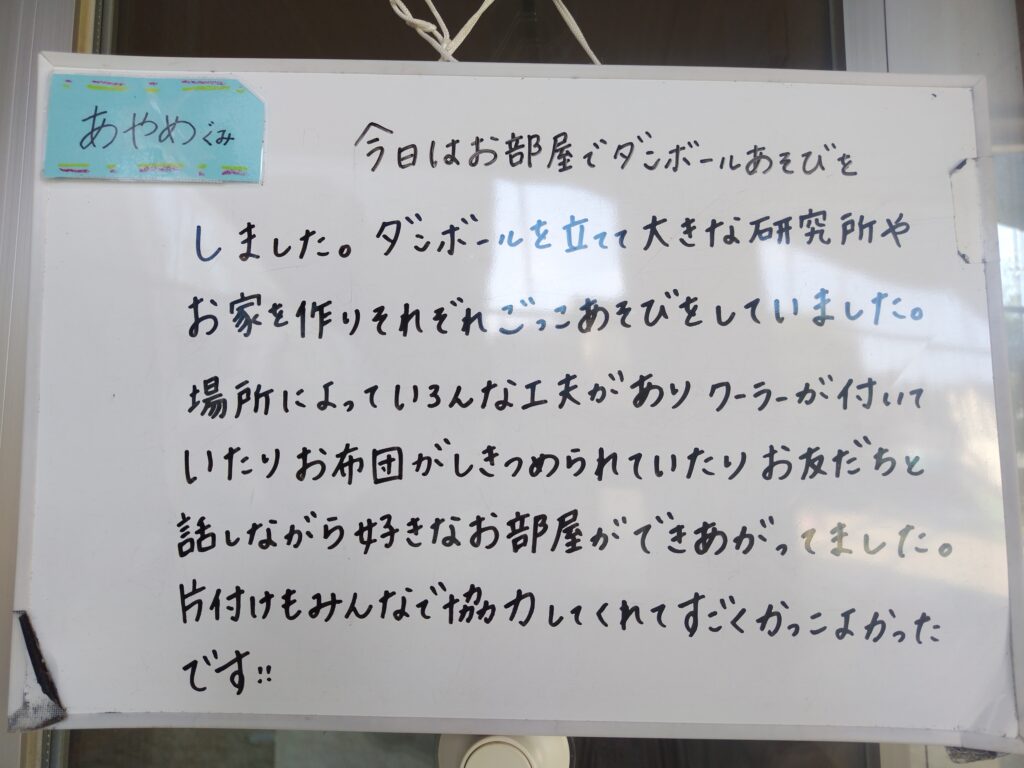 あやめぐみ
今日はお部屋でダンボールあそびを
しました。ダンボールを立てて大きな研究所や
お家を作りそれぞれごっこあそびをしていました。
場所によっていろんな工夫がありクーラーが付いて
いたりお布団がしきつめられていたりお友だちと
話しながら好きなお部屋ができあがってました。
片付けもみんなで協力してくれてすごくかっこよかった
です!!